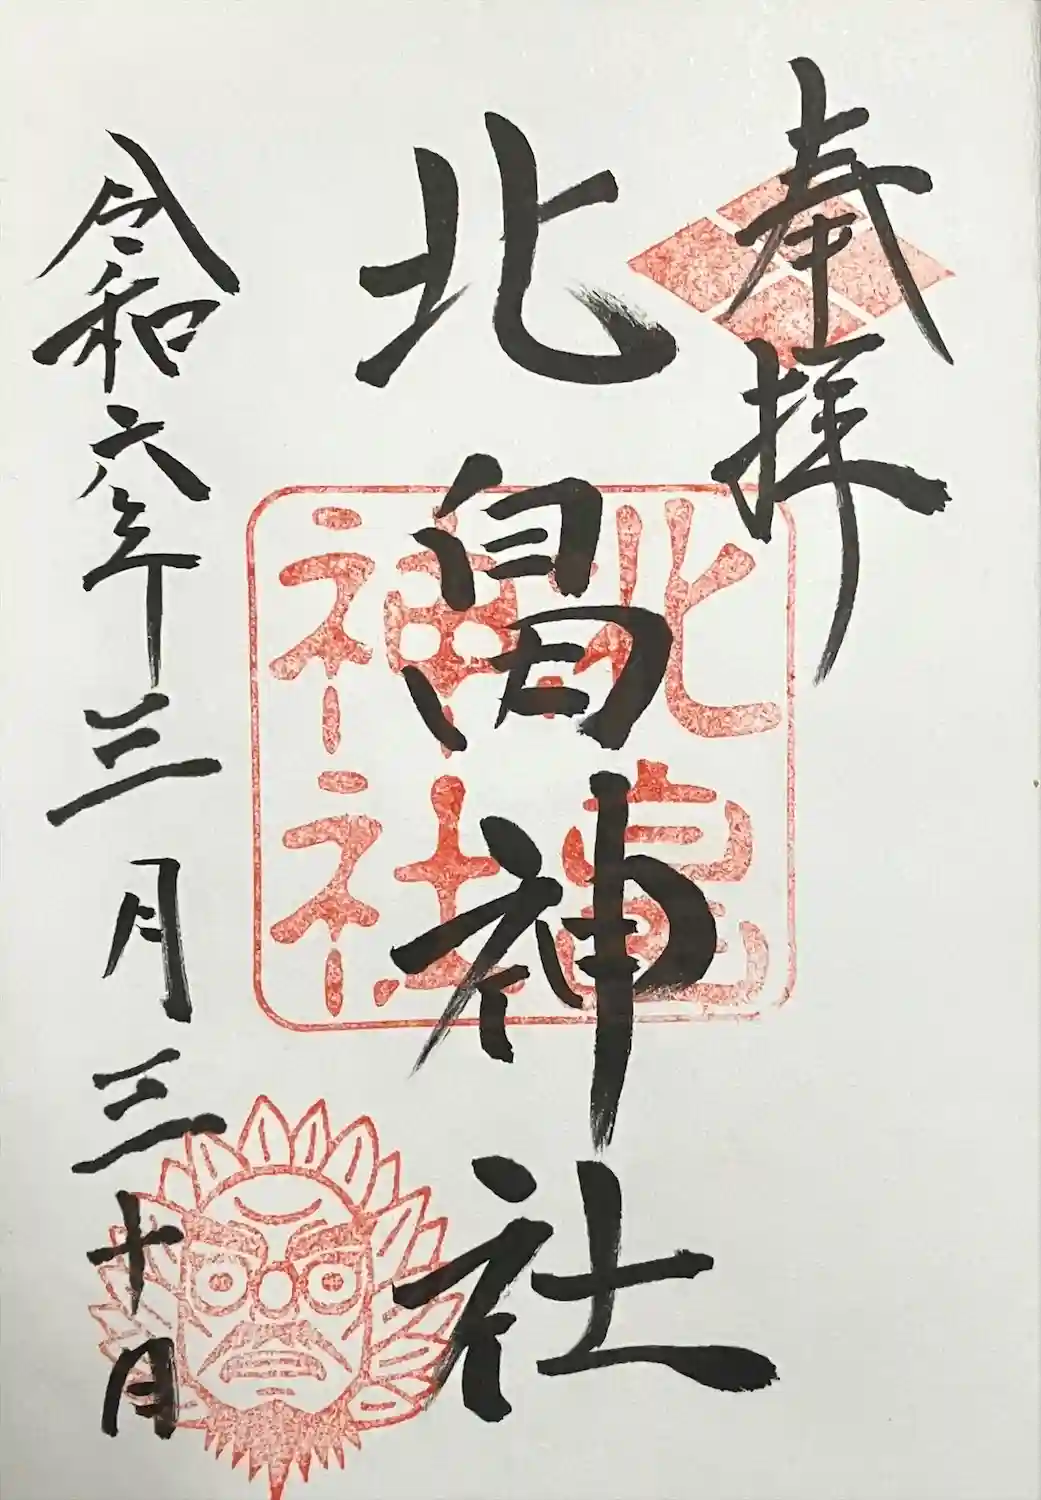 奉拝
北高神社
令和六年三月三十日
北高
神社